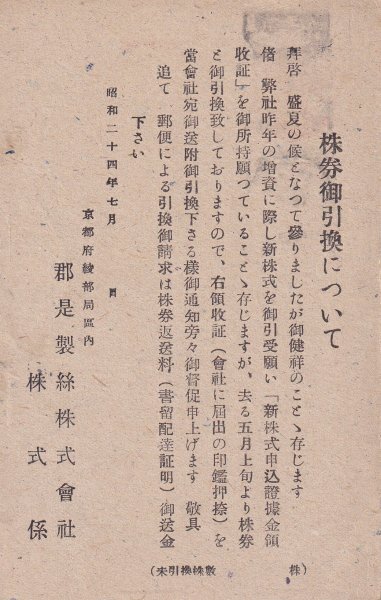 株券御引換について
拝啓 盛夏の候となつて參りましたが御健祥のことゝ存じます
偖 弊社昨年の増資に際し新株式を御引受願い「新株式申込證據金領
收証」を御所持願つていることゝ存じますが、去る五月上旬より株券
と御引換致しておりますので、右領收証(會社に屆出の印鑑押捺)を
當會社宛御送附御引換下さる様御通知旁々御督促申上げます 敬具
追て 郵便による引換御請求は株券返送料(書留配達証明)御送金
下さい
昭和二十四年七月 日
京都府綾部局區內
郡是製絲株式會社
株式係
(未引換株數 株)